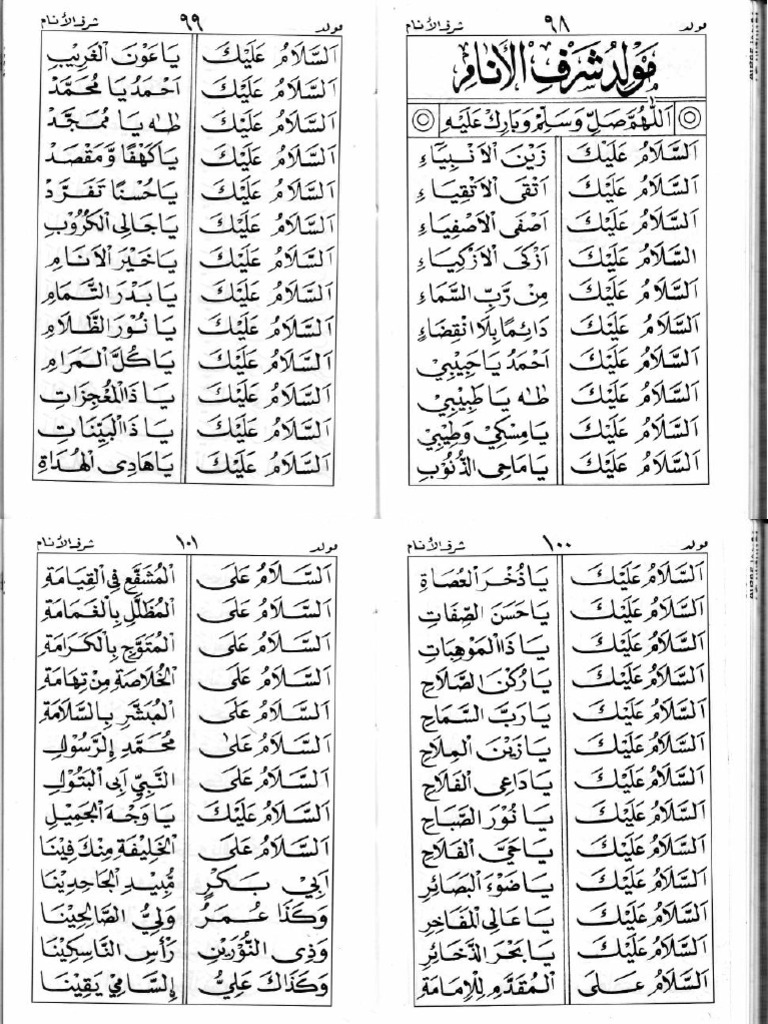 مَولد ٩٨ شرف الأنام
مَوْلِدُ شَرَفِ الْأَنَامِ
اَللّٰهُمَّ صَلِّ وَسَلِّمْ وَبَارِكْ عَلَيْهِ
اَلسَّلَامُ عَلَيْكَ زَيْنَ الْاَنْبِيَاءِ
اَلسَّلَامُ عَلَيْكَ اَتْقَى الْاَتْقِيَاءِ
اَلسَّلَامُ عَلَيْكَ اَصْفَى الْاَصْفِيَاءِ
اَلسَّلَامُ عَلَيْكَ اَزْكَى الْاَزْكِيَاءِ
اَلسَّلَامُ عَلَيْكَ مِنْ رَّبِّ السَّمَاءِ
اَلسَّلَامُ عَلَيْكَ دَائِمًا بِلَا انْقِضَاءِ
اَلسَّلَامُ عَلَيْكَ اَحْمَدُ يَا حَبِيْبِيْ
اَلسَّلَامُ عَلَيْكَ طٰهٰ يَا طَبِيْبِيْ
اَلسَّلَامُ عَلَيْكَ يَا مِسْكِيْ وَطِيْبِيْ
اَلسَّلَامُ عَلَيْكَ يَا مَاحِي الذُّنُوْبِ
مَولد ٩٩ شرف الأنام
اَلسَّلَامُ عَلَيْكَ يَا عَوْنَ الْغَرِيْبِ
اَلسَّلَامُ عَلَيْكَ اَحْمَدُ يَا مُحَمَّدْ
اَلسَّلَامُ عَلَيْكَ طٰهٰ يَا مُمَجَّدْ
اَلسَّلَامُ عَلَيْكَ يَا كَهْفًا وَّمَقْصَدْ
اَلسَّلَامُ عَلَيْكَ يَا حُسْنًا تَفَرَّدْ
اَلسَّلَامُ عَلَيْكَ يَا جَالِي الْكُرُوْبِ
اَلسَّلَامُ عَلَيْكَ يَا خَيْرَ الْاَنَامِ
اَلسَّلَامُ عَلَيْكَ يَا بَدْرَ التَّمَامِ
اَلسَّلَامُ عَلَيْكَ يَا نُوْرَ الظَّلَامِ
اَلسَّلَامُ عَلَيْكَ يَا كُلَّ الْمَرَامِ
اَلسَّلَامُ عَلَيْكَ يَا ذَا الْمُعْجِزَاتِ
اَلسَّلَامُ عَلَيْكَ يَا ذَا الْبَيِّنَاتِ
اَلسَّلَامُ عَلَيْكَ يَا هَادِي الْهُدَاةِ
مَولد ١٠٠ شرف الأنام
اَلسَّلَامُ عَلَيْكَ يَا ذُخْرَ الْعُصَاةِ
اَلسَّلَامُ عَلَيْكَ يَا حَسَنَ الصِّفَاتِ
اَلسَّلَامُ عَلَيْكَ يَا ذَا الْمَوْهِبَاتِ
اَلسَّلَامُ عَلَيْكَ يَا رُكْنَ الصَّلَاحِ
اَلسَّلَامُ عَلَيْكَ يَا رَبَّ السَّمَاحِ
اَلسَّلَامُ عَلَيْكَ يَا زَيْنَ الْمِلَاحِ
اَلسَّلَامُ عَلَيْكَ يَا دَاعِي الْفَلَاحِ
اَلسَّلَامُ عَلَيْكَ يَا نُوْرَ الصَّبَاحِ
اَلسَّلَامُ عَلَيْكَ يَا حَيَّ الْفَلَاحِ
اَلسَّلَامُ عَلَيْكَ يَا ضَوْءَ الْبَصَائِرِ
اَلسَّلَامُ عَلَيْكَ يَا عَالِي الْمَفَاخِرِ
اَلسَّلَامُ عَلَيْكَ يَا بَحْرَ الذَّخَائِرِ
اَلسَّلَامُ عَلَى الْمُقَدَّمِ لِلْاِمَامَةِ
مَولد ١٠١ شرف الأنام
اَلسَّلَامُ عَلَى الْمُشَفَّعِ فِي الْقِيَامَةِ
اَلسَّلَامُ عَلَى الْمُظَلَّلِ بِالْغَمَامَةِ
اَلسَّلَامُ عَلَى الْمُتَوَّجِ بِالْكَرَامَةِ
اَلسَّلَامُ عَلَى الْخُلَاصَةِ مِنْ تِهَامَةِ
اَلسَّلَامُ عَلَى الْمُبَشَّرِ بِالسَّلَامَةِ
اَلسَّلَامُ عَلٰى مُحَمَّدِ اِلرَّسُوْلِ
اَلسَّلَامُ عَلَى النَّبِيِّ اَبِي الْبَتُوْلِ
اَلسَّلَامُ عَلَيْكَ يَا وَجْهَ الْجَمِيْلِ
اَلسَّلَامُ عَلَى الْخَلِيْفَةِ مِنْكَ فِيْنَا
اَبِيْ بَكْرٍ مُّبِيْدِ الْجَاحِدِيْنَا
وَكَذَا عُمَرُ وَلِيُّ الصَّالِحِيْنَا
وَذِي النُّوْرَيْنِ رَأْسِ النَّاسِكِيْنَا
وَكَذَاكَ عَلِيُّ اِلسَّامِيْ يَقِيْنَا